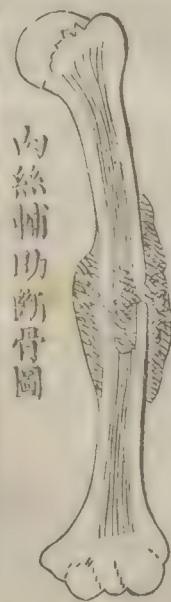 肉絲輔助斷骨圖